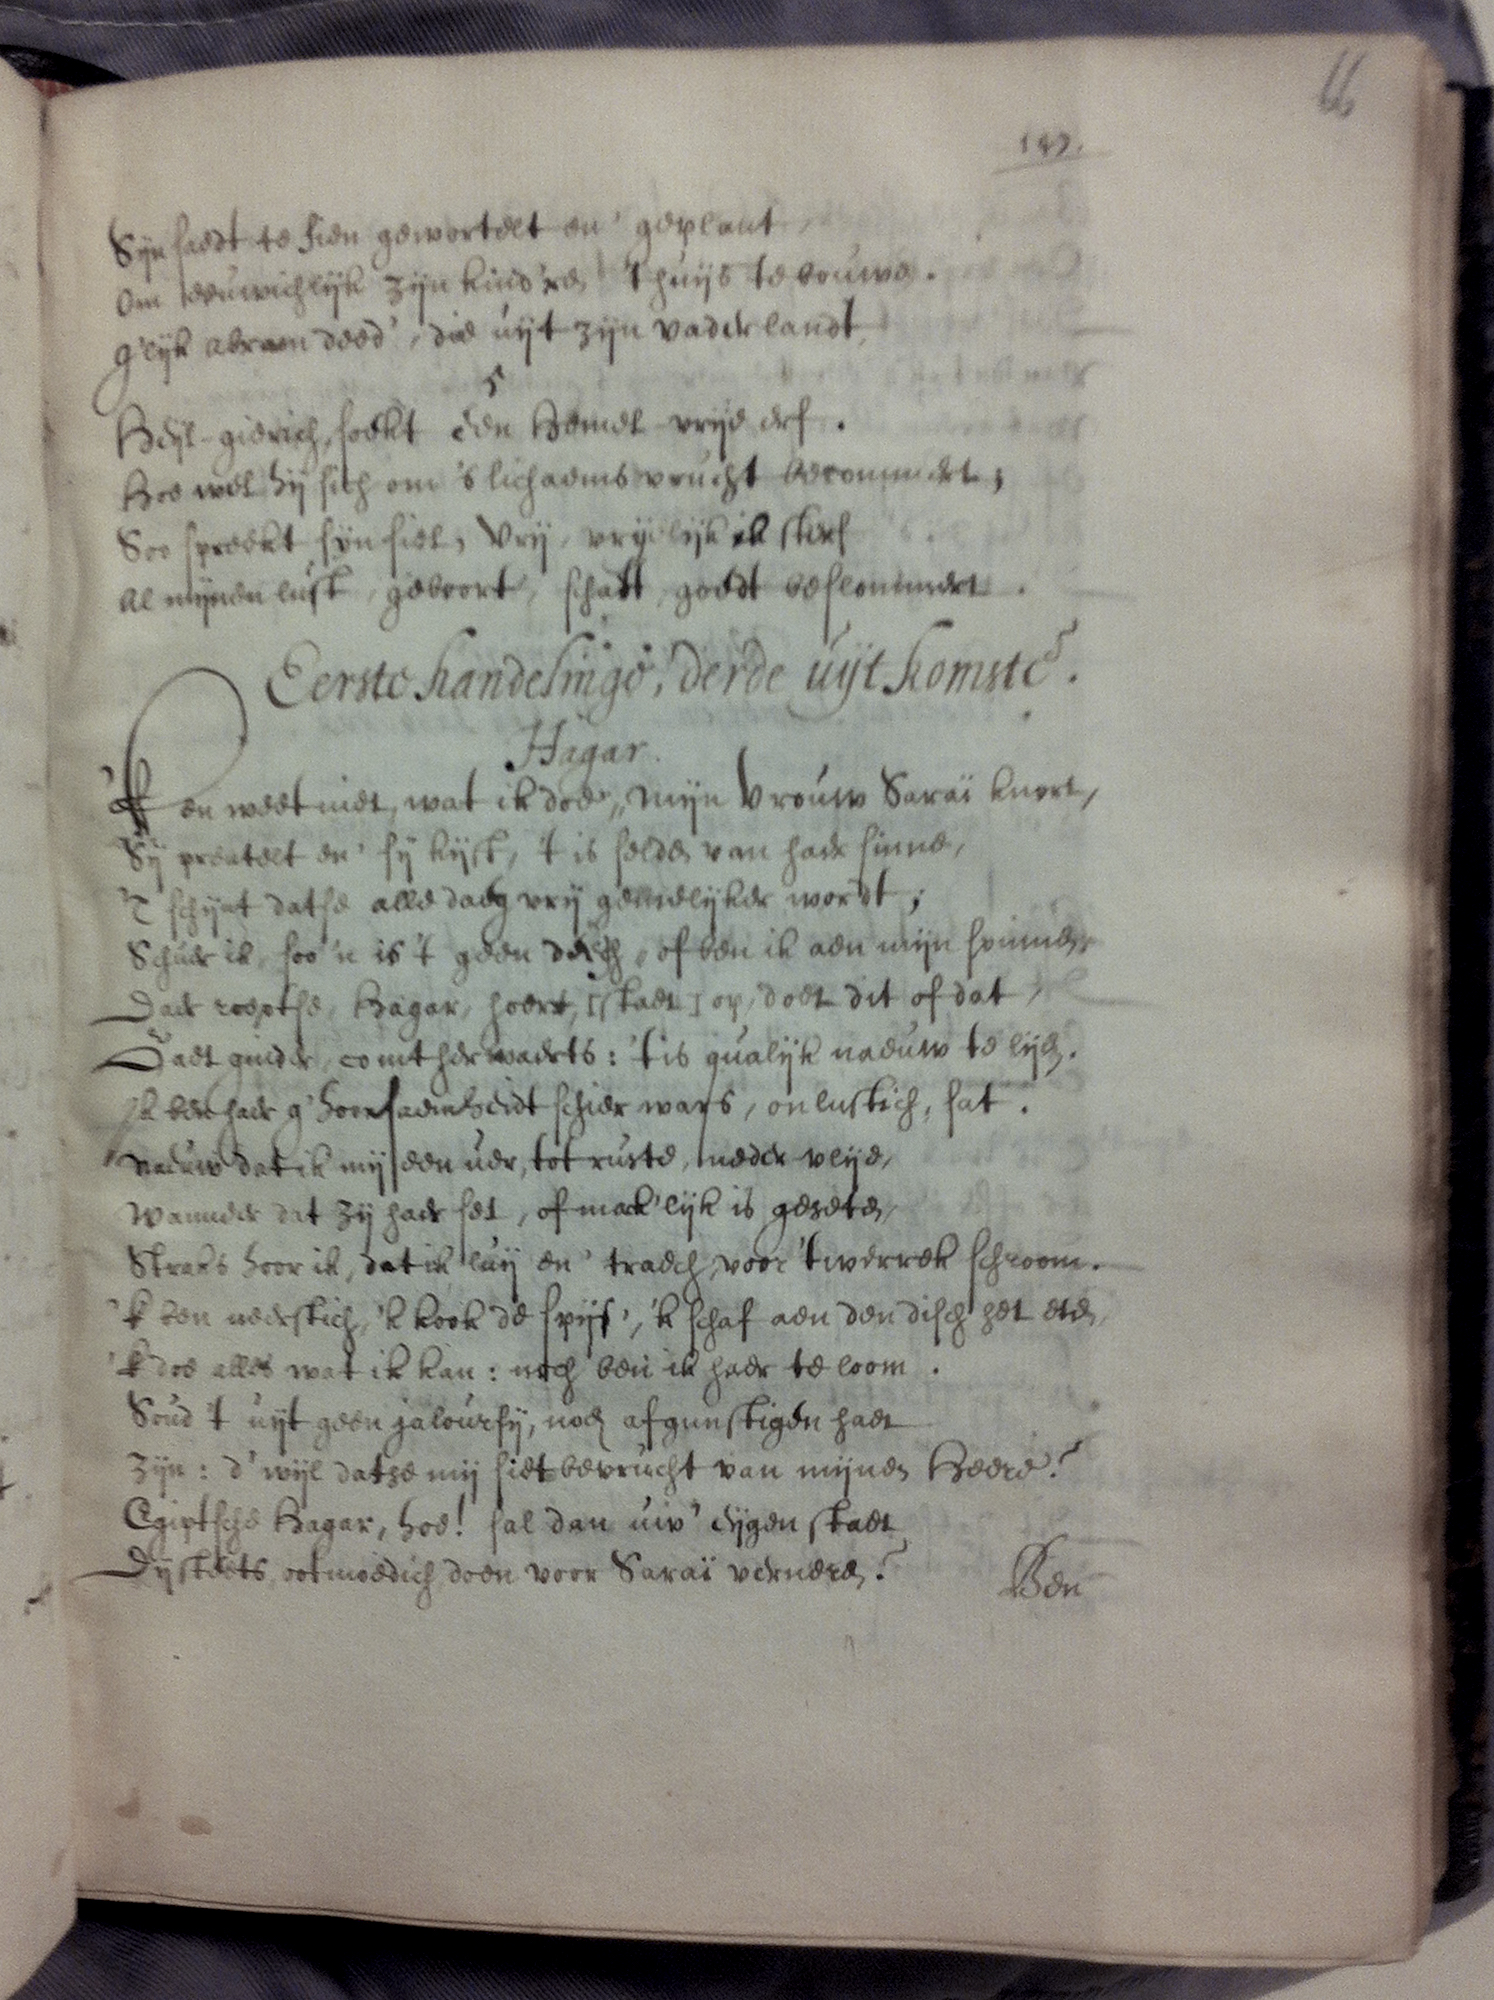 66
147.
Syn saedt te sien gewortelt en' geplant,
Om eeuwichlijk zijn kind'ren 't huijs te bouwen.
G'lijk abram deed', die uijt zijn vaderlandt,
5
Heijl-gierich, soekt een Hemel-vrije erf.
Hoe wel hij sich om 's lichaems vrucht becommert;
Soo spreekt syn siel, Vrij, vryelijk ik sterf
Al mijnen lust, geboort, schatt, goedt beslommert.
Eerste handelinge, derde uijtkomste.
Hagar.
'K en weet niet, wat ik doe, Mijn Vrouw Saraï knort,
Sy preutelt en' sy kijft, 't is selden van haer sinne,
'T schijnt datse alle daeg vrij gemelijker wordt;
Schuer ik, soo 'n is 't geen deech, of ben ik aen mijn spinnen,
Daer roeptse, Hagar, hoert, [staet] op, doet dit of dat,
Gaet ginder, comt herwaerts: 't is qualijk naeuw te lijden.
Ik ben haer g'hoorsaemheidt schier wars, onlustich, sat.
Naeuw dat ik mij een uer, tot ruste, neder vlije,
Wanneer dat zij haer set, of mack'lijk is geseten,
Straks hoor ik, dat ik luij en' traech, voor 't werrek schroom.
'k ben neerstich, 'k kook de spijs', 'k schaf aen den disch het eten,
'k doe alles wat ik kan: noch ben ik haer te loom.
Soud 't uijt geen jaloursij, noch afgunstigen haet
Zijn: d'wijl datse mij siet bevrucht van mijnen Heere?
Egiptsche Hagar, hoe! sal dan uw' eijgen staet
Dy steets ootmoedich doen voor Saraï verneren?
Ben